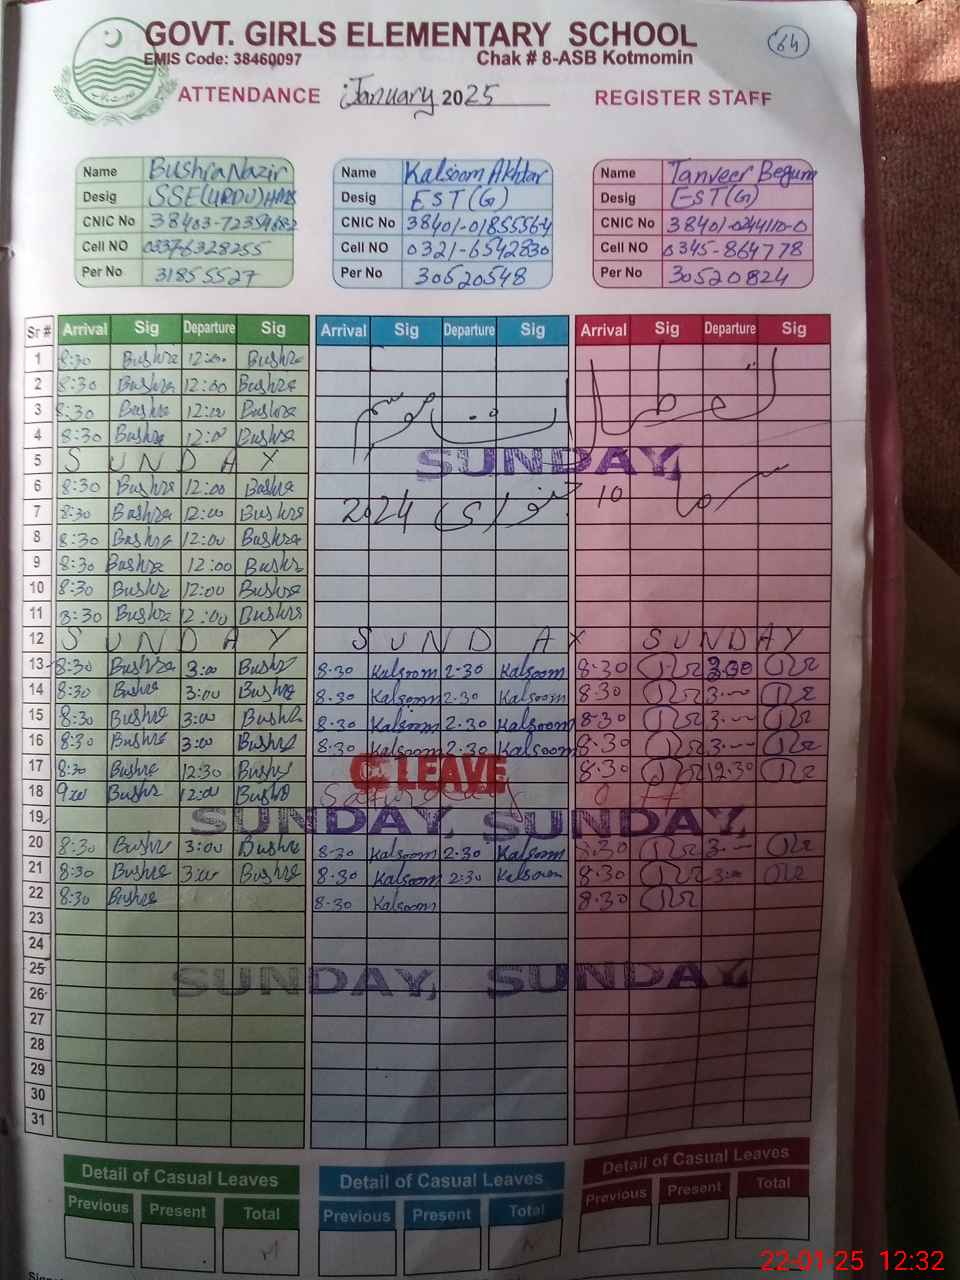 GOVT. GIRLS ELEMENTARY SCHOOL
64
EMIS Code: 38460097 Chak # 8-ASB Kotmomin
ATTENDANCE January 2025 REGISTER STAFF
Name Bushra Nazir Name Kalsoom Akhtar Name Tanveer Begum
Desig SSE(URDU)HM Desig EST(G) Desig EST(G)
CNIC No CNIC No 38401-0185556-4 CNIC No 38401-0244110-0
Cell NO 03376328255 Cell NO 0321-6542830 Cell NO 0345-864778
Per No 31855527 Per No 30520548 Per No 30520824
Sr # Arrival Sig Departure Sig Arrival Sig Departure Sig Arrival Sig Departure Sig
1 8:30 Bushra 12:00 Bushra
2 8:30 Bushra 12:00 Bushra
3 8:30 Bushra 12:00 Bushra
4 8:30 Bushra 12:00 Bushra
تعطیلات موسم
5 SUNDAY SUNDAY,
6 8:30 Bushra 12:00 Bushra
سرما 10 جنوری 2024
7 8:30 Bushra 12:00 Bushra
8 8:30 Bushra 12:00 Bushra
9 8:30 Bushra 12:00 Bushra
10 8:30 Bushra 12:00 Bushra
11 8:30 Bushra 12:00 Bushra
12 SUNDAY SUNDAY SUNDAY
13 8:30 Bushra 3:00 Bushra 8-30 Kalsoom 2-30 Kalsoom 8-30 3.00
14 8:30 Bushra 3:00 Bushra 8-30 Kalsoom 2-30 Kalsoom 8-30 3-
15 8:30 Bushra 3:00 Bushra 8-30 Kalsoom 2-30 Kalsoom 8-30 3-
16 8:30 Bushra 3:00 Bushra 8-30 Kalsoom 2-30 Kalsoom 8-30 3-
17 8:30 Bushra 12:30 Bushra LEAVE 8-30 12-30
18 9:00 Bushra 12:00 Bushra Saturday off
19 SUNDAY, SUNDAY,
20 8:30 Bushra 3:00 Bushra 8-30 Kalsoom 2-30 Kalsoom 8-30 3-
21 8:30 Bushra 3:00 Bushra 8-30 Kalsoom 2-30 Kalsoom 8-30 3-
22 8:30 Bushra 8-30 Kalsoom 8-30
23
24
25 SUNDAY, SUNDAY,
26
27
28
29
30
31
Detail of Casual Leaves Detail of Casual Leaves Detail of Casual Leaves
Previous Present Total Previous Present Total Previous Present Total
22-01-25 12:32